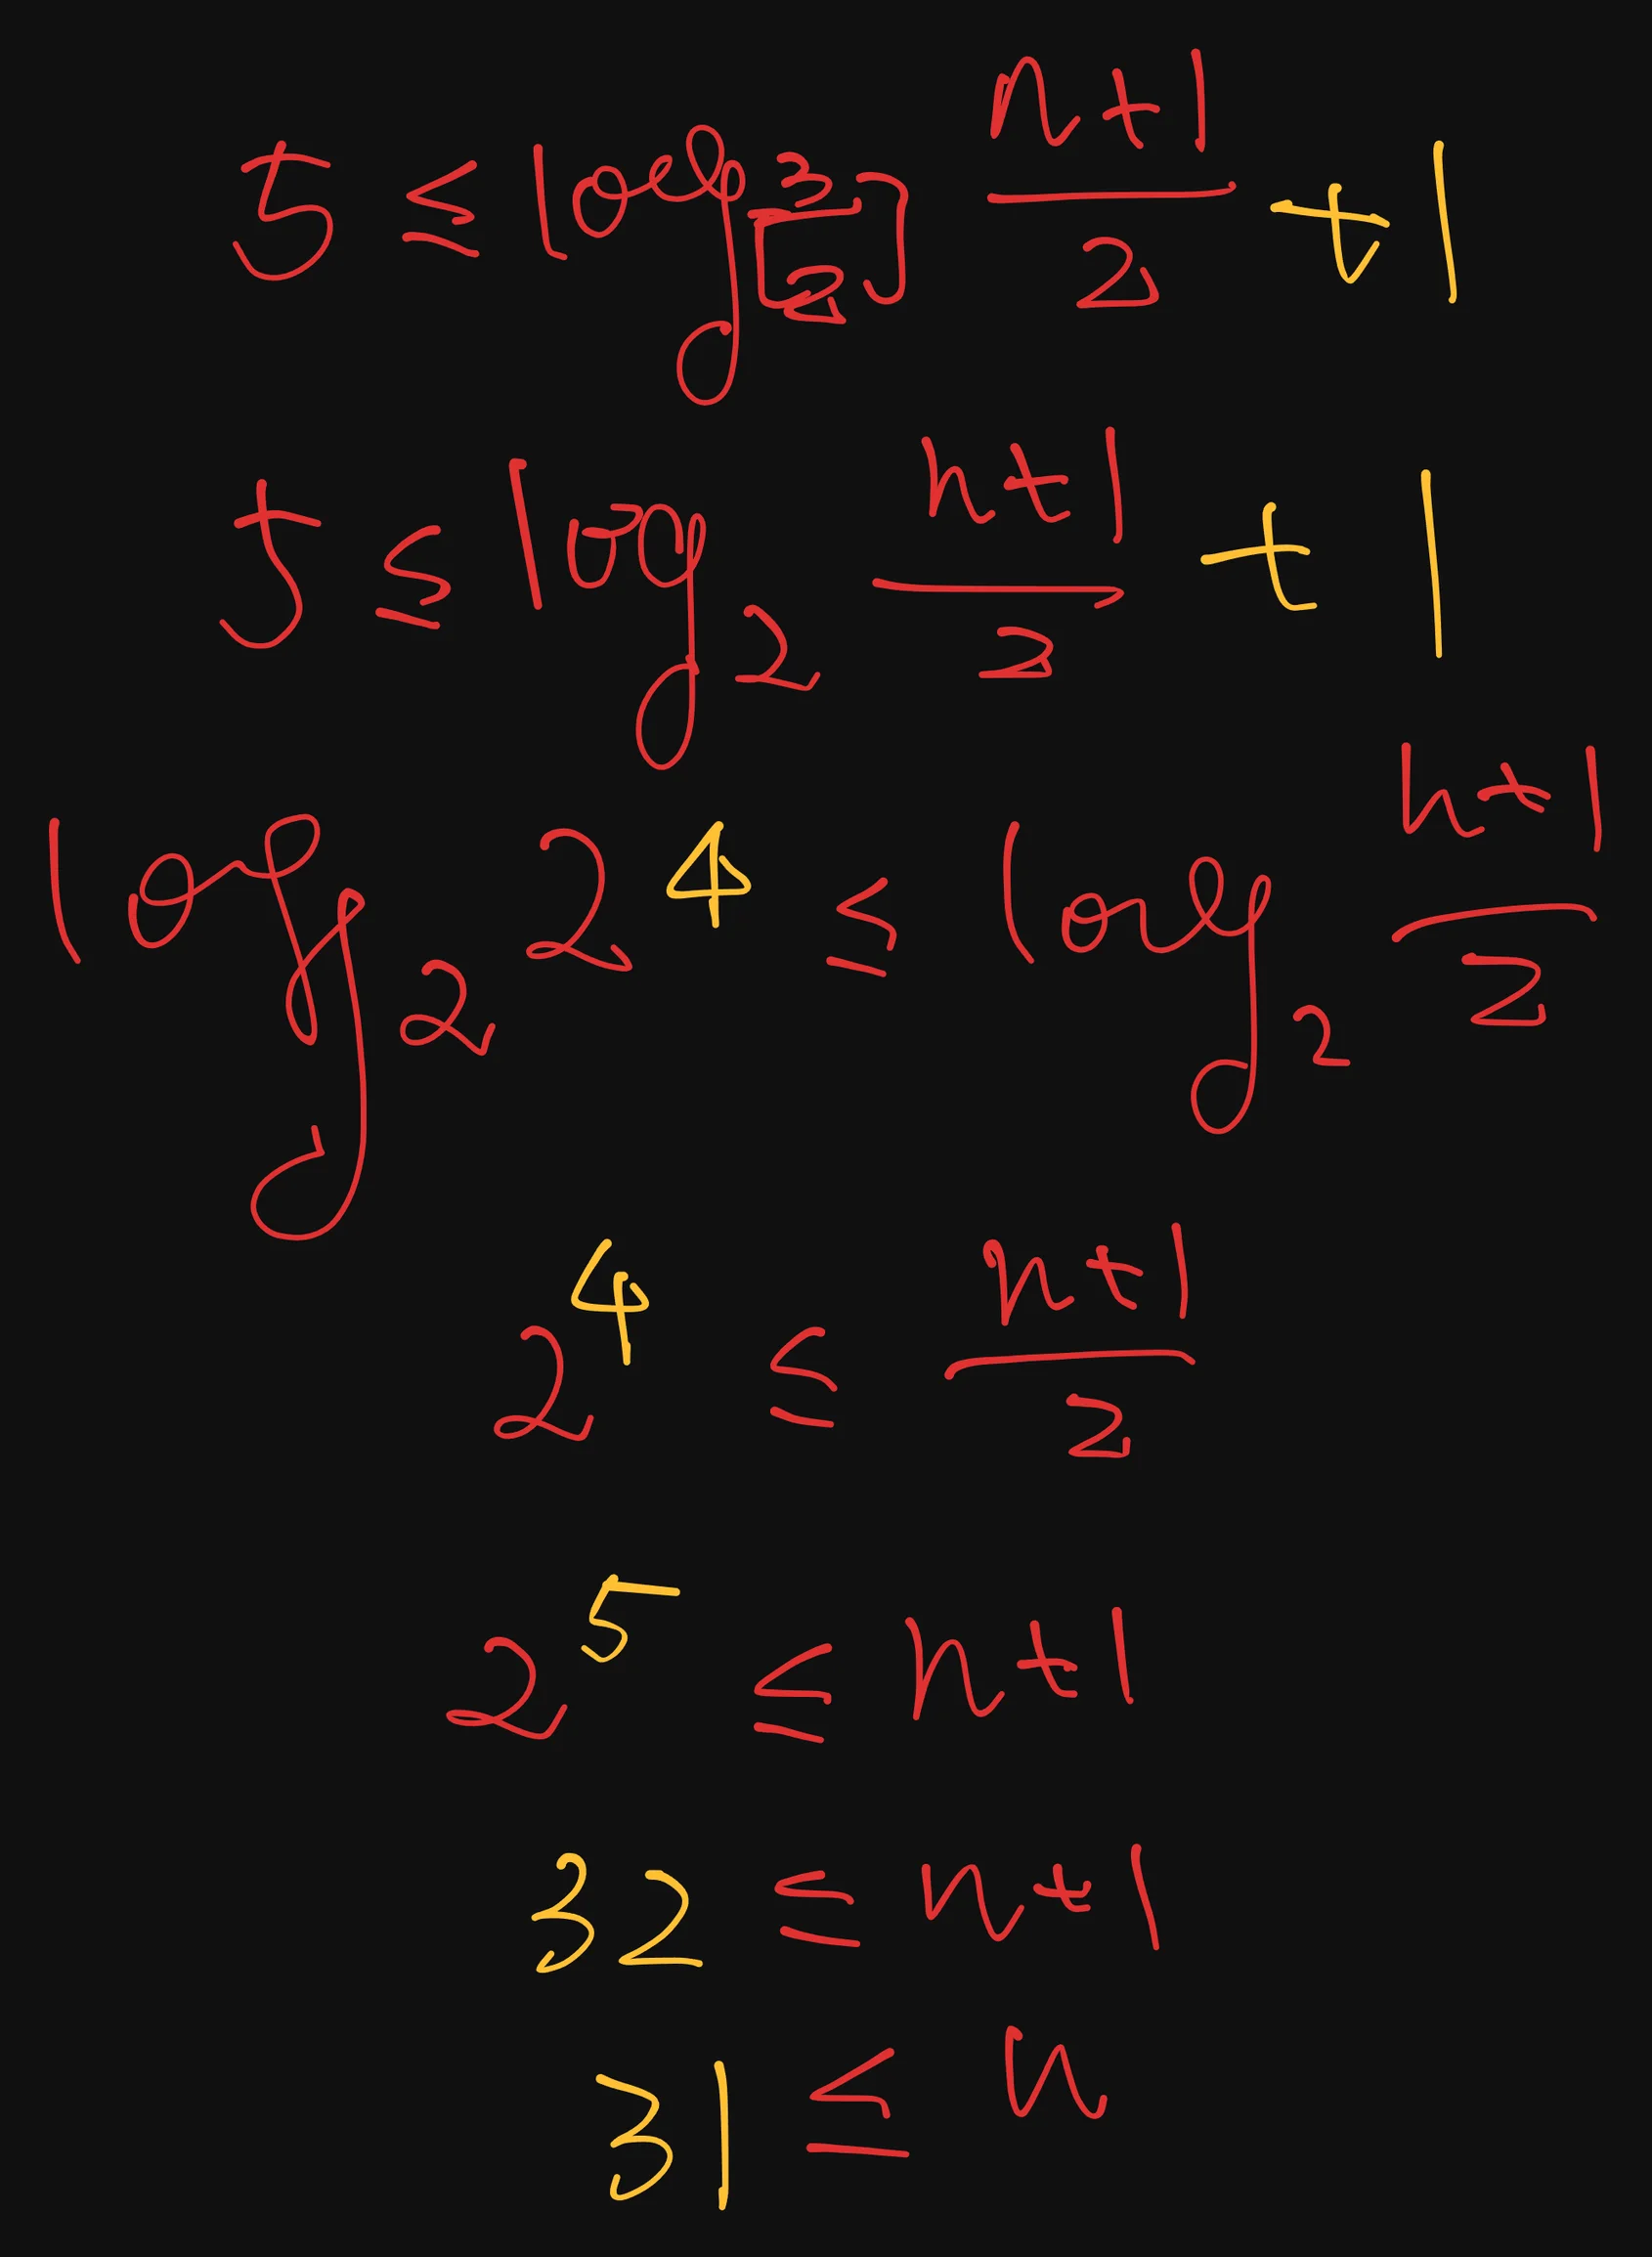 5 ≤ log⌈3/2⌉ (n+1)/2 + 1
5 ≤ log₂ (n+1)/2 + 1
log₂ 2⁴ ≤ log₂ (n+1)/2
2⁴ ≤ (n+1)/2
2⁵ ≤ n+1
32 ≤ n+1
31 ≤ n